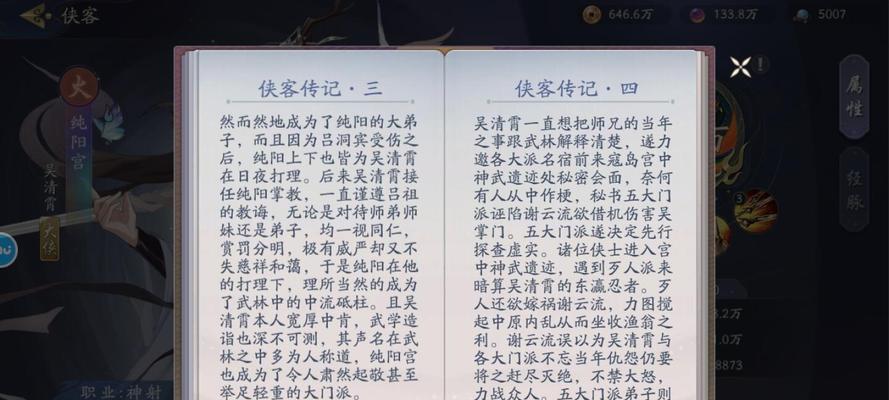 侠客
646.6万
133.8万
5007
火
纯阳宫
吴清霄
大侠
职业:神射
侠客传记·三
然而然地成为了纯阳的大弟
子,而且因为吕洞宾受伤之
后,纯阳上下也皆为吴清霄
在日夜打理。后来吴清霄接
任纯阳掌教,一直谨遵吕祖
的教诲,无论是对待师弟师
妹还是弟子,均一视同仁,
赏罚分明,极有威严却又不
失慈祥和蔼,于是纯阳在他
的打理下,理所当然的成为
了武林中的中流砥柱。且吴
清霄本人宽厚中肯,武学造
诣也深不可测,其声名在武
林之中多为人称道,纯阳宫
也成为了令人肃然起敬甚至
举足轻重的大门派。
侠客传记·四
吴清霄一直想把师兄的当年
之事跟武林解释清楚,遂力
邀各大派名宿前来寇岛宫中
神武遗迹处秘密会面,奈何
有人从中作梗,秘书五大门
派诬陷谢云流欲借机伤害吴
掌门。五大门派遂决定先行
探查虚实。诸位侠士进入宫
中神武遗迹,遇到歹人派来
暗算吴清霄的东瀛忍者。歹
人还欲嫁祸谢云流,力图搅
起中原内乱从而坐收渔翁之
利。谢云流误以为吴清霄与
各大门派不忘当年仇怨仍要
将之赶尽灭绝,不禁大怒,
力战众人。五大门派弟子则
属性
经脉
3
8873